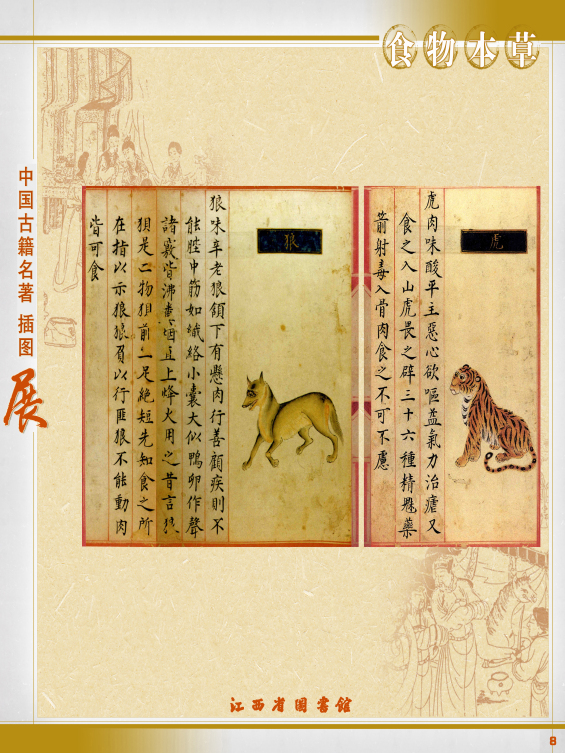 食物本草
中国古籍名著 插图
展
虎
虎肉味酸平主惡心欲嘔益氣力治瘧又
食之入山虎畏之辟三十六種精魅藥
箭射毒入骨肉食之不可不慮
狼
狼味辛老狼頷下有懸肉行善顧疾則不
能胜中筋如織絡小囊大似鴨卵作聲
諸竅皆沸烟直上烽火用之昔言狼
狽是二物狽前二足絕短先知食之所
在指以示狼狼負以行匪狼不能動肉
皆可食
江西省图書館
8